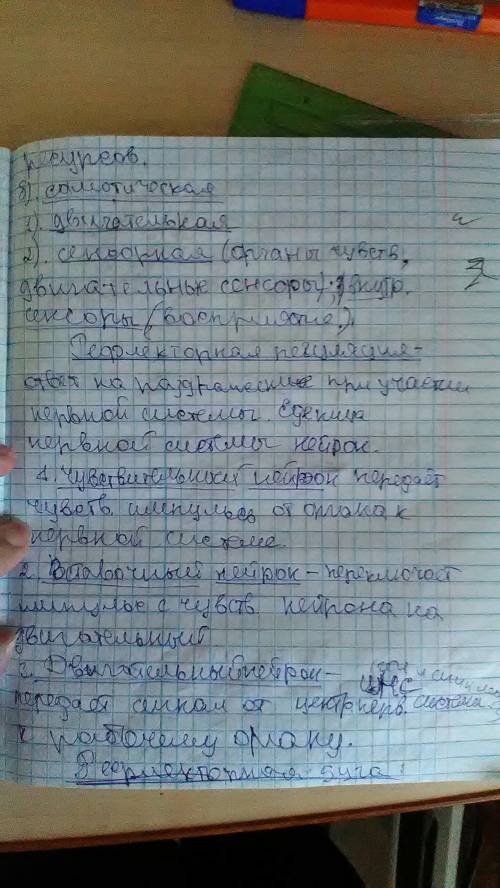 ресурсов.
8). соматическая
1). двигательная
2). сенсорная (органы чувств,
двигательные сенсоры); внутр.
сенсоры (восприятие.)
Рефлекторная регуляция-
ответ на раздражение при участии
нервной системы. Еденица
нервной системы нейрон.
1. Чувствительный нейрон передаёт
чувств. импульсы от органа к
нервной системе
2. Вставочный нейрон - переключает
импульс с чувств. нейрона на
двигательный
3. Двигательный нейрон-
передаёт сигнал от центр. нерв. системы
ЦНС
к рабочему органу.
Рефлекторная дуга